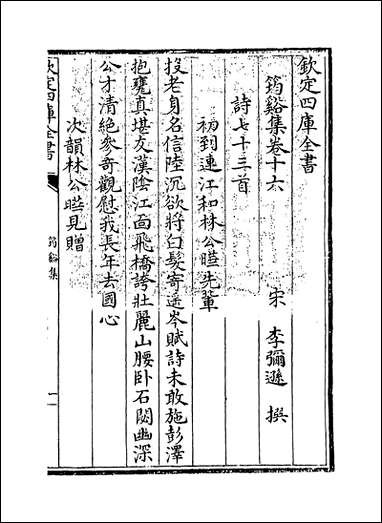 欽定四庫全書
筠谿集卷十六
宋 李彌遜 撰
詩七十三首
初到連江和林公㫮先輩
投老身名信陸沉欲將白髮寄遥岑賦詩未敢施彭澤
抱甕真堪友漢陰江面飛橋誇壯麗山腰卧石閟幽深
公才清絶參奇觀慰我長年去國心
次韻林公㫮見贈
欽定四庫全書
筠谿集
一